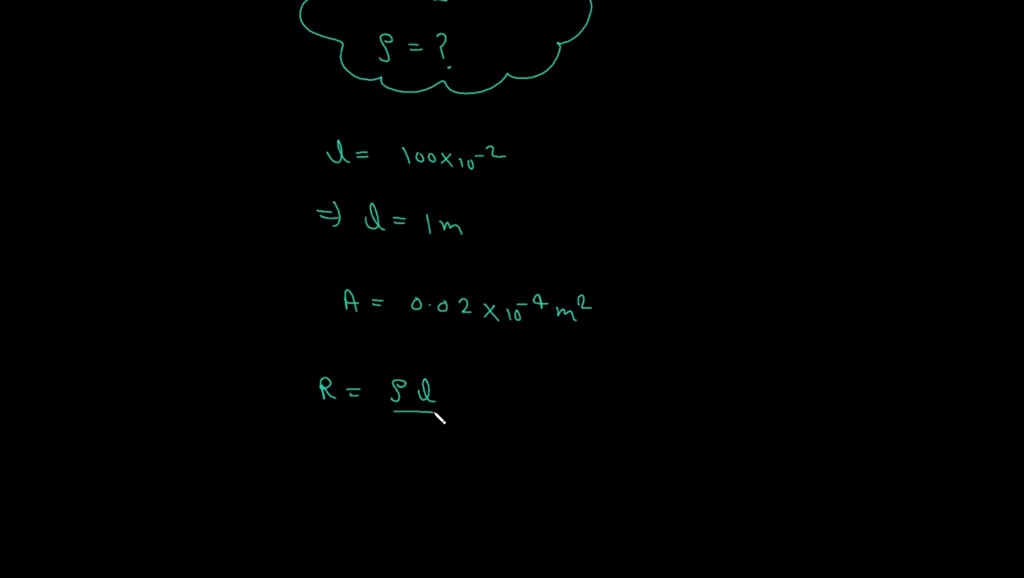 ρ = ?
l = 100×10⁻²
⇒ l = 1m
A = 0.02×10⁻⁴ m²
R = ρl